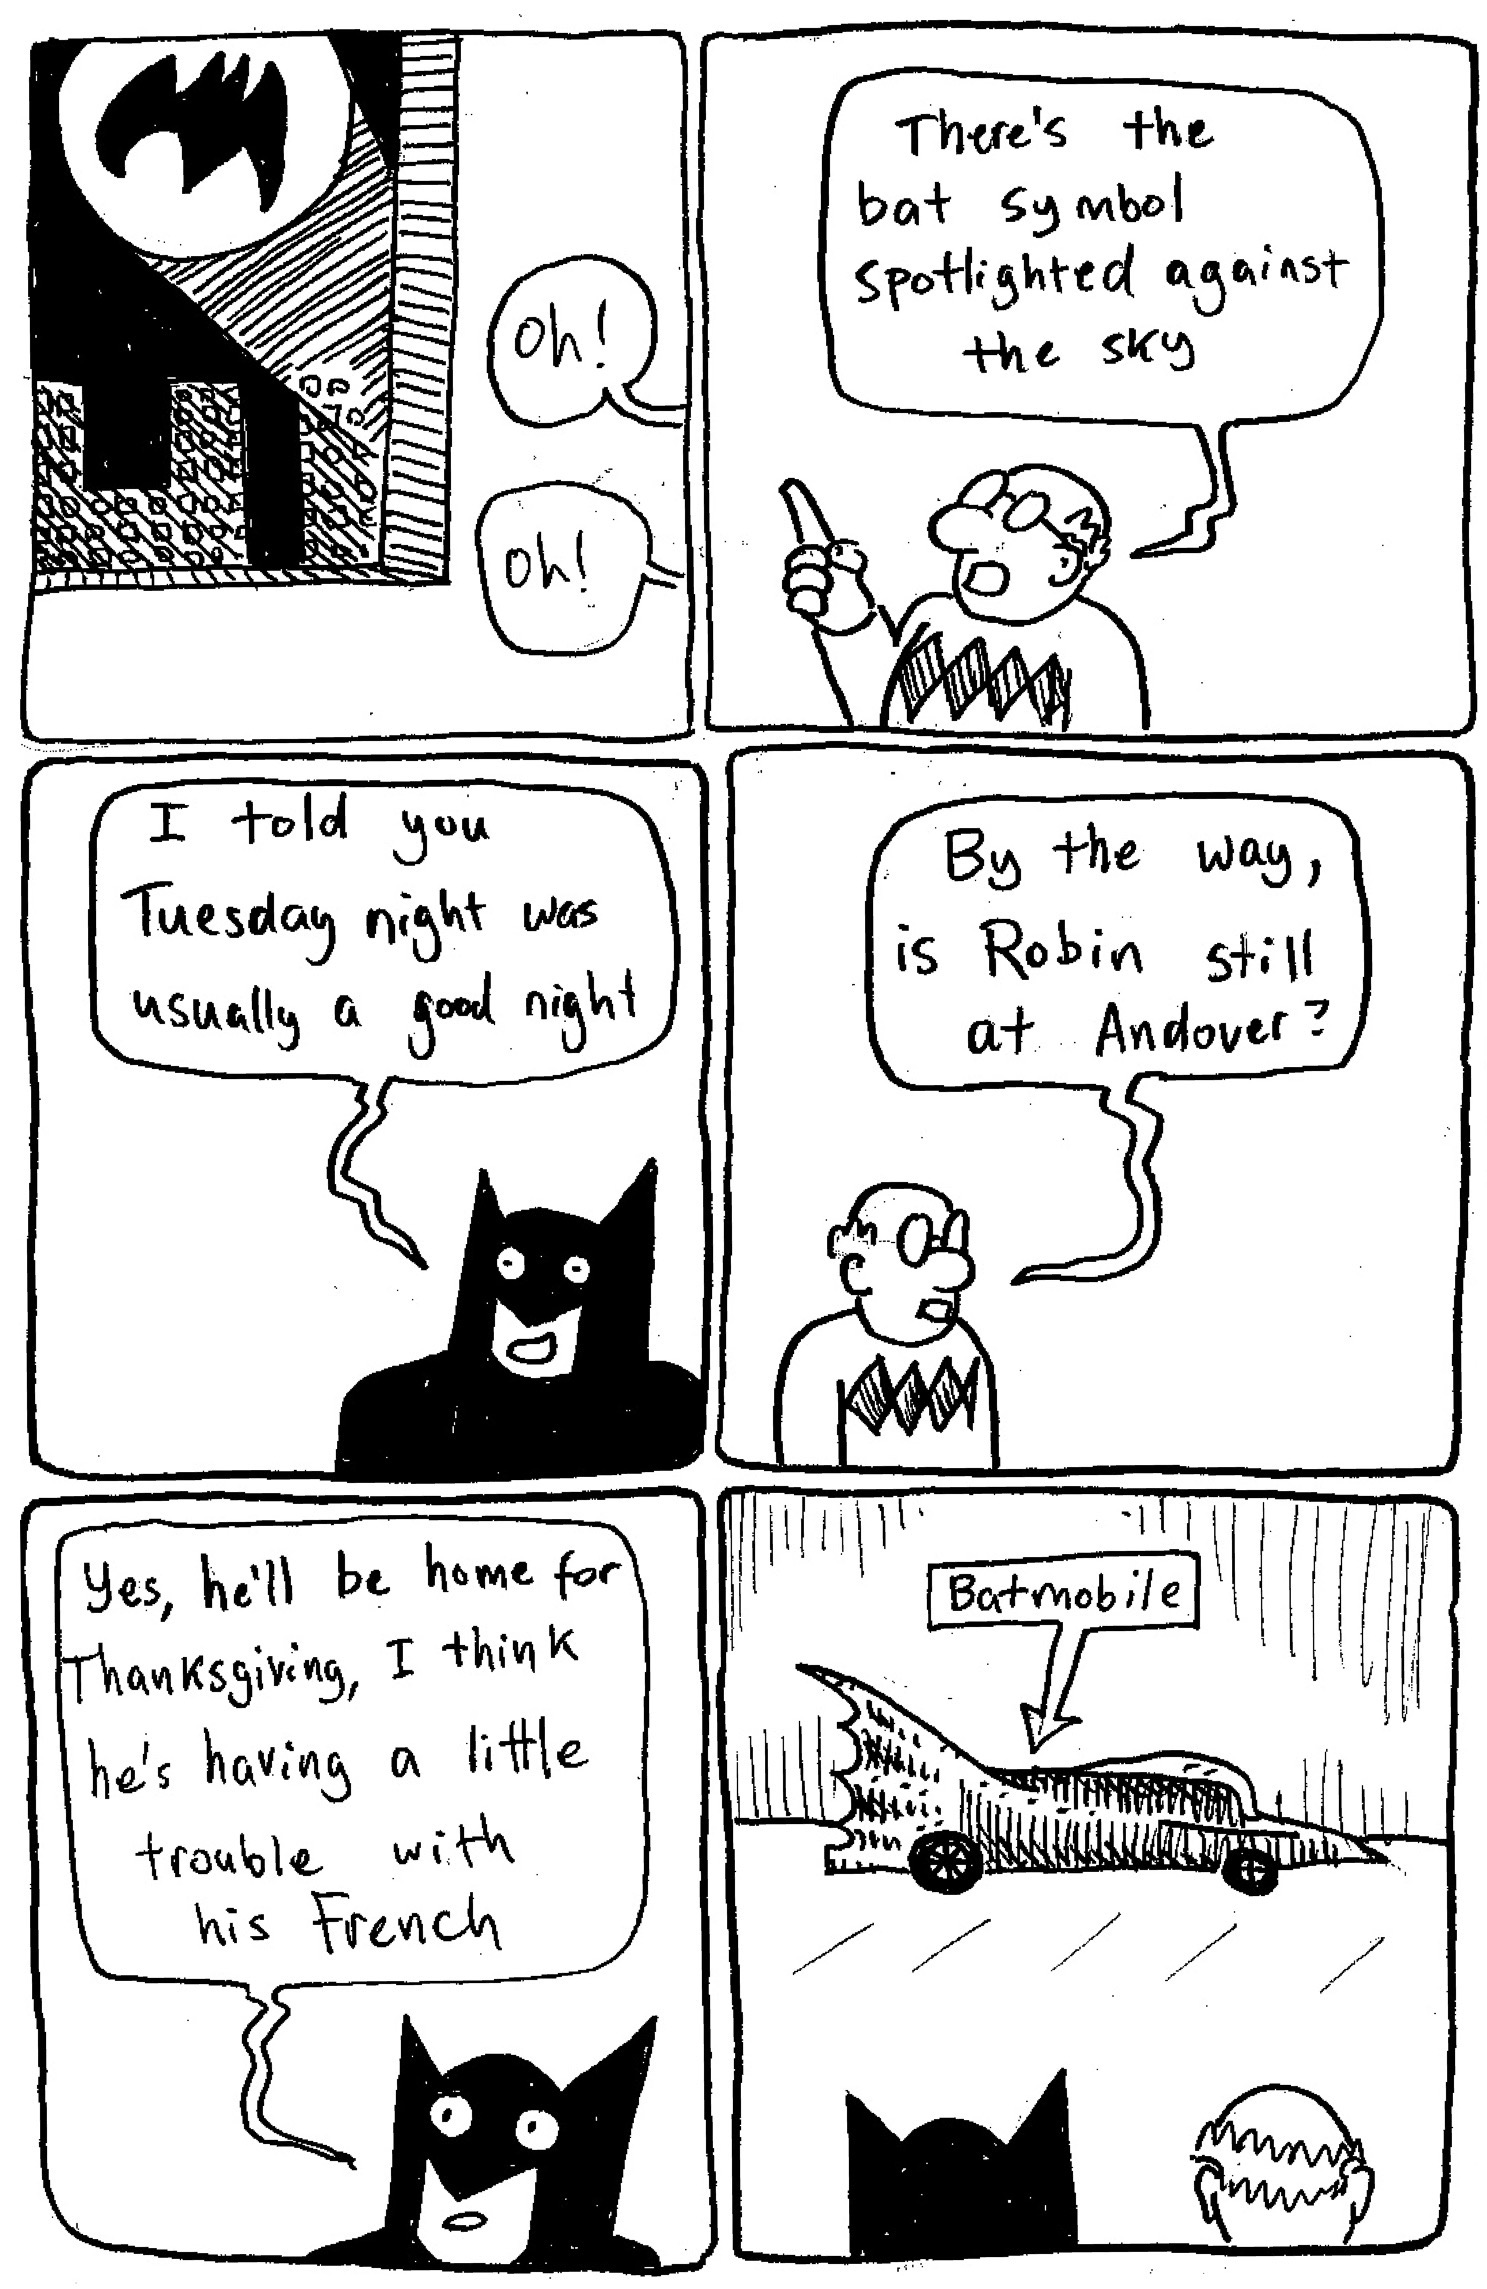 Oh!
Oh!
There's the
bat symbol
spotlighted against
the sky
I told you
Tuesday night was
usually a good night
By the way,
is Robin still
at Andover?
Yes, he'll be home for
Thanksgiving, I think
he's having a little
trouble with
his French
Batmobile